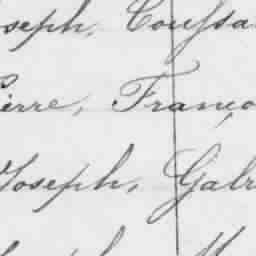 oseph, Coussa
ierre, Franço
Joseph, Gabr